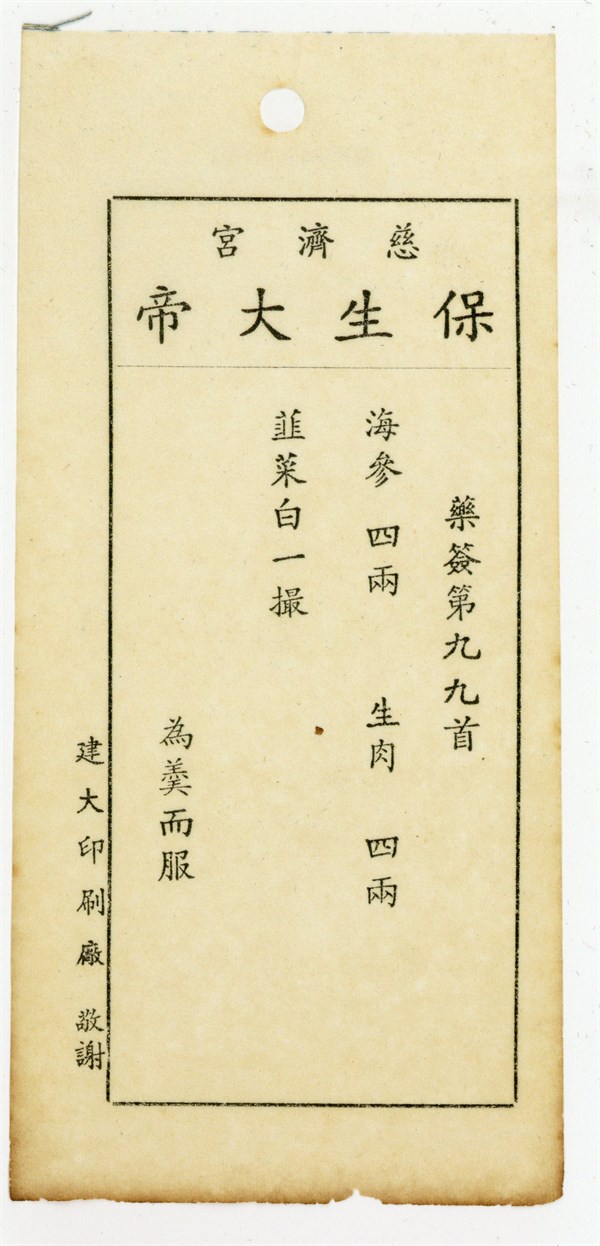 慈濟宮
保生大帝
藥簽第九九首
海參 四兩 生肉 四兩
韮菜白一撮
為羹而服
建大印刷廠 敬謝